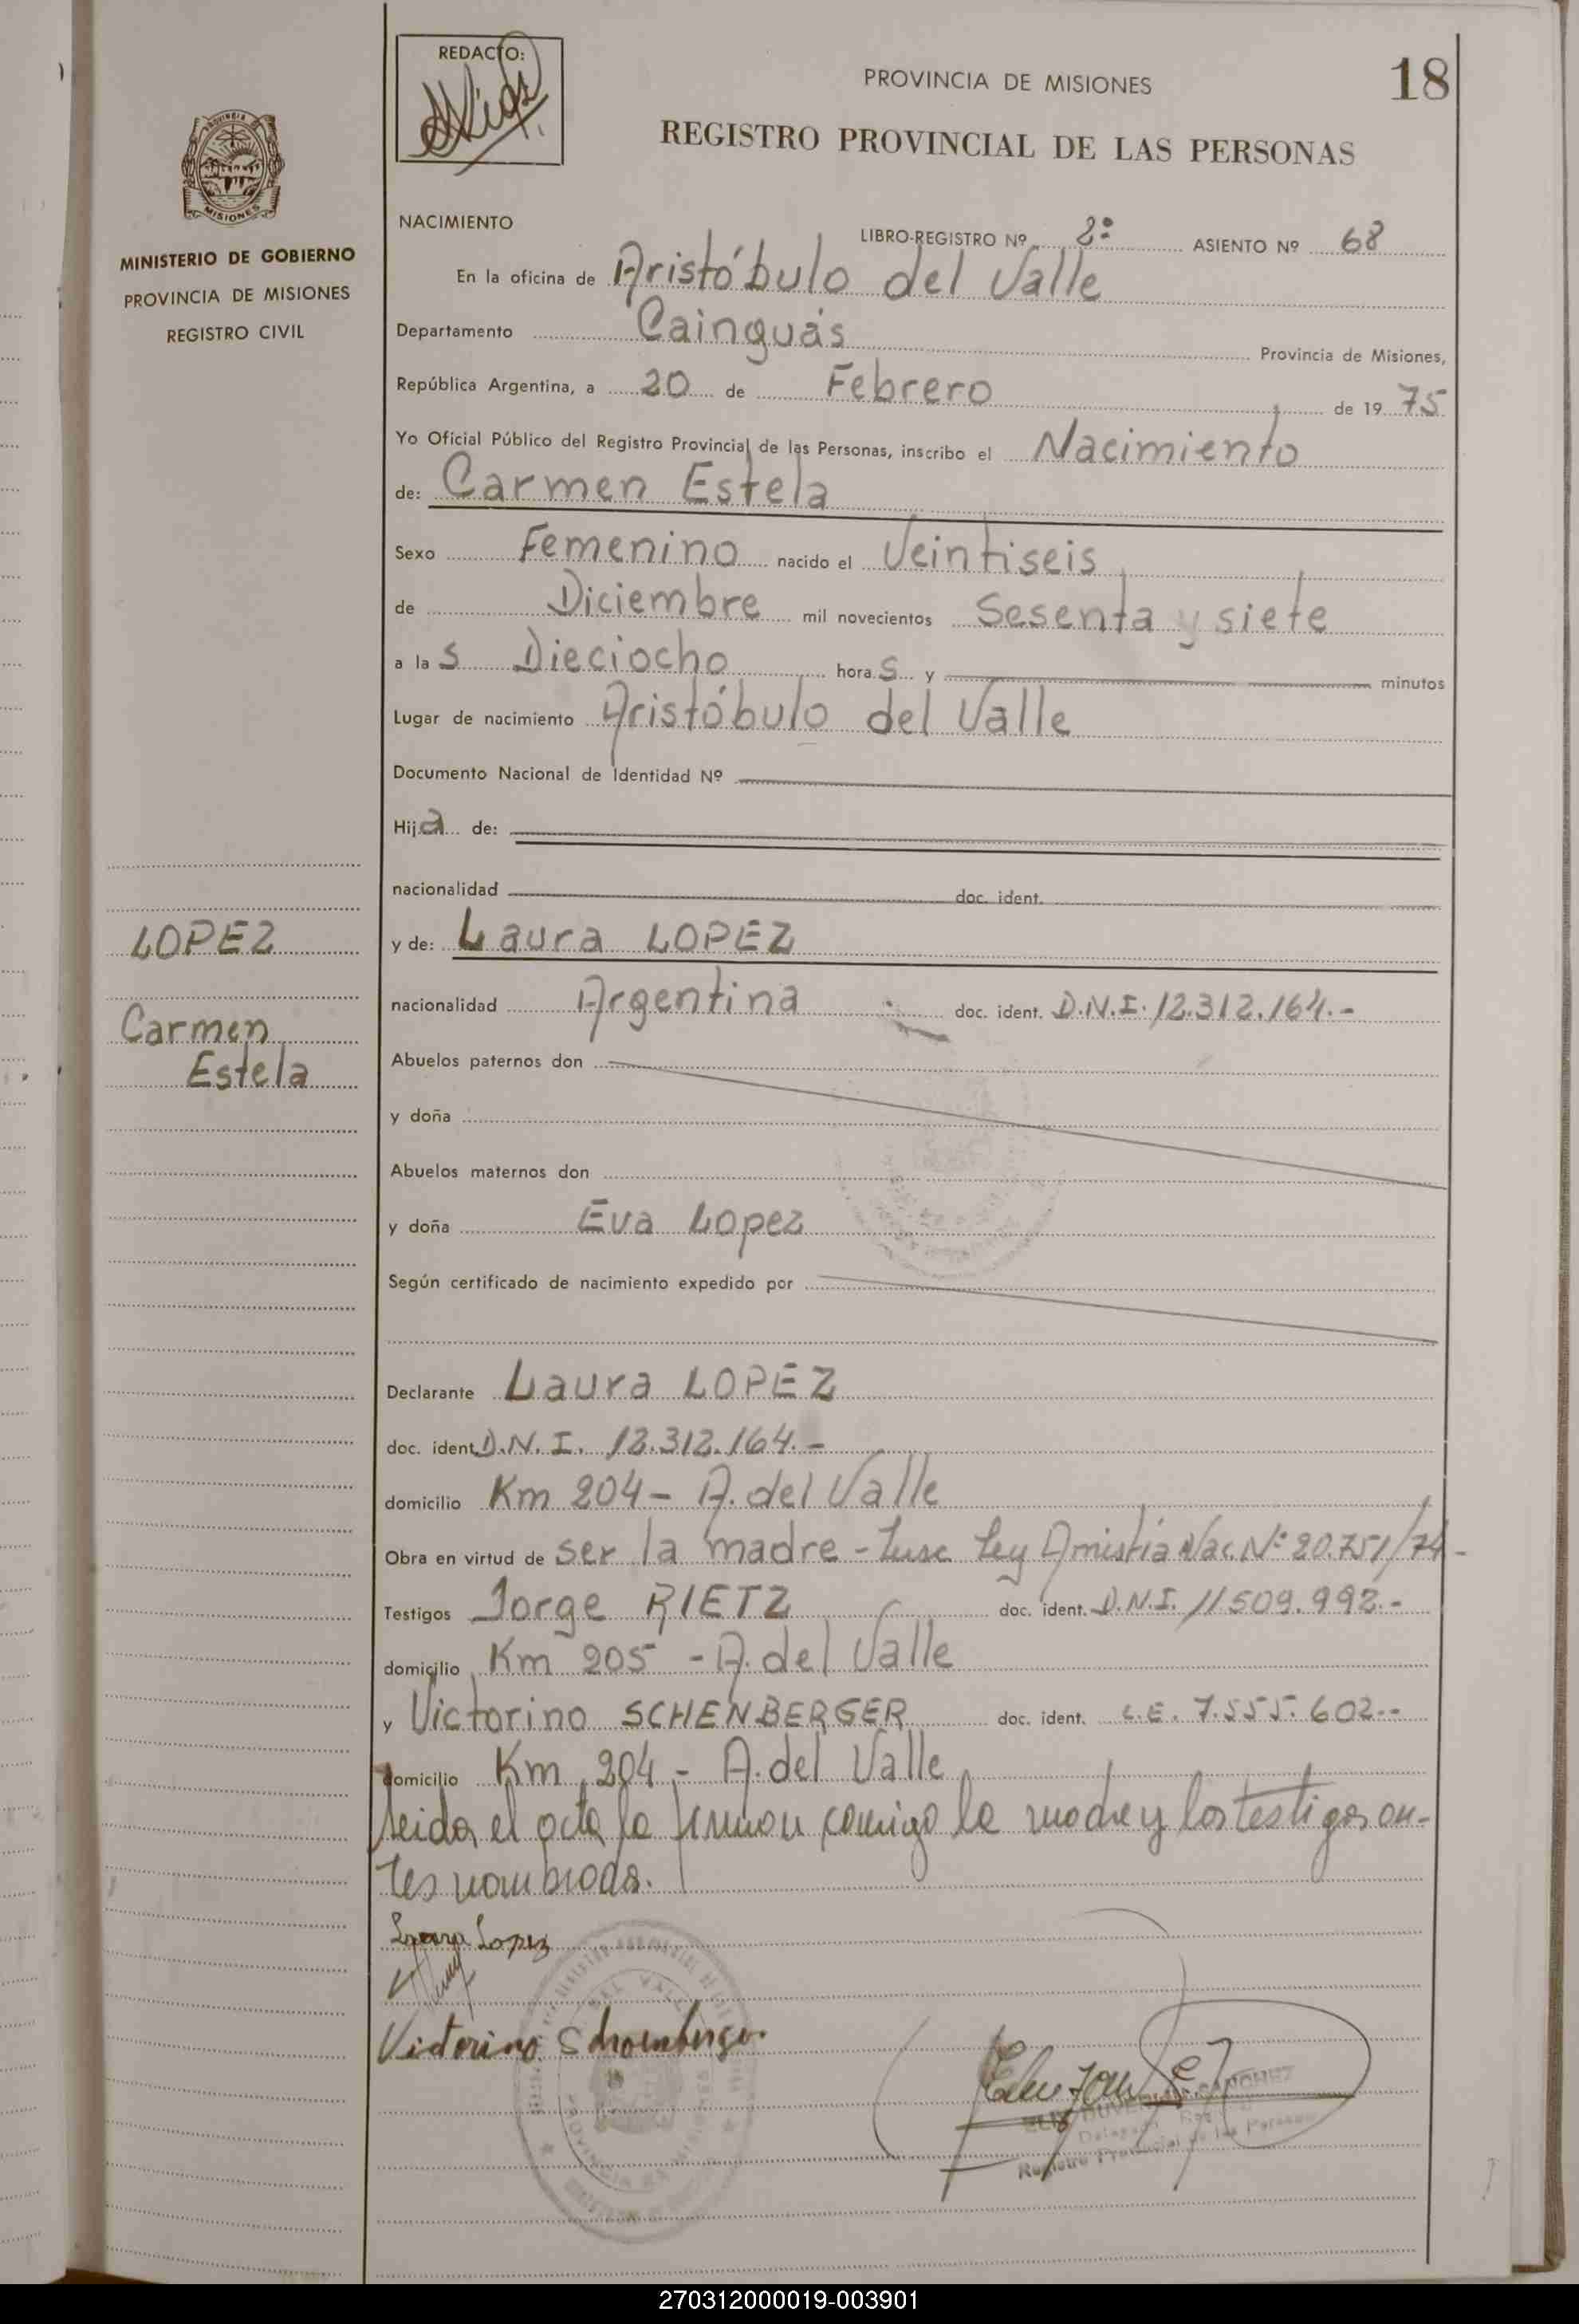 REDACTO:
PROVINCIA DE MISIONES
18
REGISTRO PROVINCIAL DE LAS PERSONAS
MISIONES
MINISTERIO DE GOBIERNO
PROVINCIA DE MISIONES
REGISTRO CIVIL
NACIMIENTO
LIBRO-REGISTRO Nº 2º ASIENTO Nº 68
En la oficina de Aristóbulo del Valle
Departamento Cainguás Provincia de Misiones,
República Argentina, a 20 de Febrero de 19 75
Yo Oficial Público del Registro Provincial de las Personas, inscribo el Nacimiento
de: Carmen Estela
Sexo Femenino nacido el Veintiseis
de Diciembre mil novecientos Sesenta y siete
a la s Dieciocho hora s y minutos
Lugar de nacimiento Aristóbulo del Valle
Documento Nacional de Identidad Nº
Hij a de:
nacionalidad doc. ident.
LOPEZ
y de: Laura LOPEZ
nacionalidad Argentina doc. ident. D.N.I. 12.312.164.-
Carmen
Estela
Abuelos paternos don
y doña
Abuelos maternos don
y doña Eva Lopez
Según certificado de nacimiento expedido por
Declarante Laura LOPEZ
doc. ident. D.N.I. 12.312.164.-
domicilio Km 204 - A. del Valle
Obra en virtud de ser la madre - Ley Amistia Nac. Nº 20.751/74 -
Testigos Jorge RIETZ doc. ident. D.N.I. 11509.992.-
domicilio Km 205 - A. del Valle
y Victorino SCHENBERGER doc. ident. L.E. 7.555.602.-
domicilio Km 204 - A. del Valle
leida el acta la firman comigo la madre y los testigos an-
tes nombrados.
Laura Lopez
Victorino
Registro Provincial de las Personas
270312000019-003901